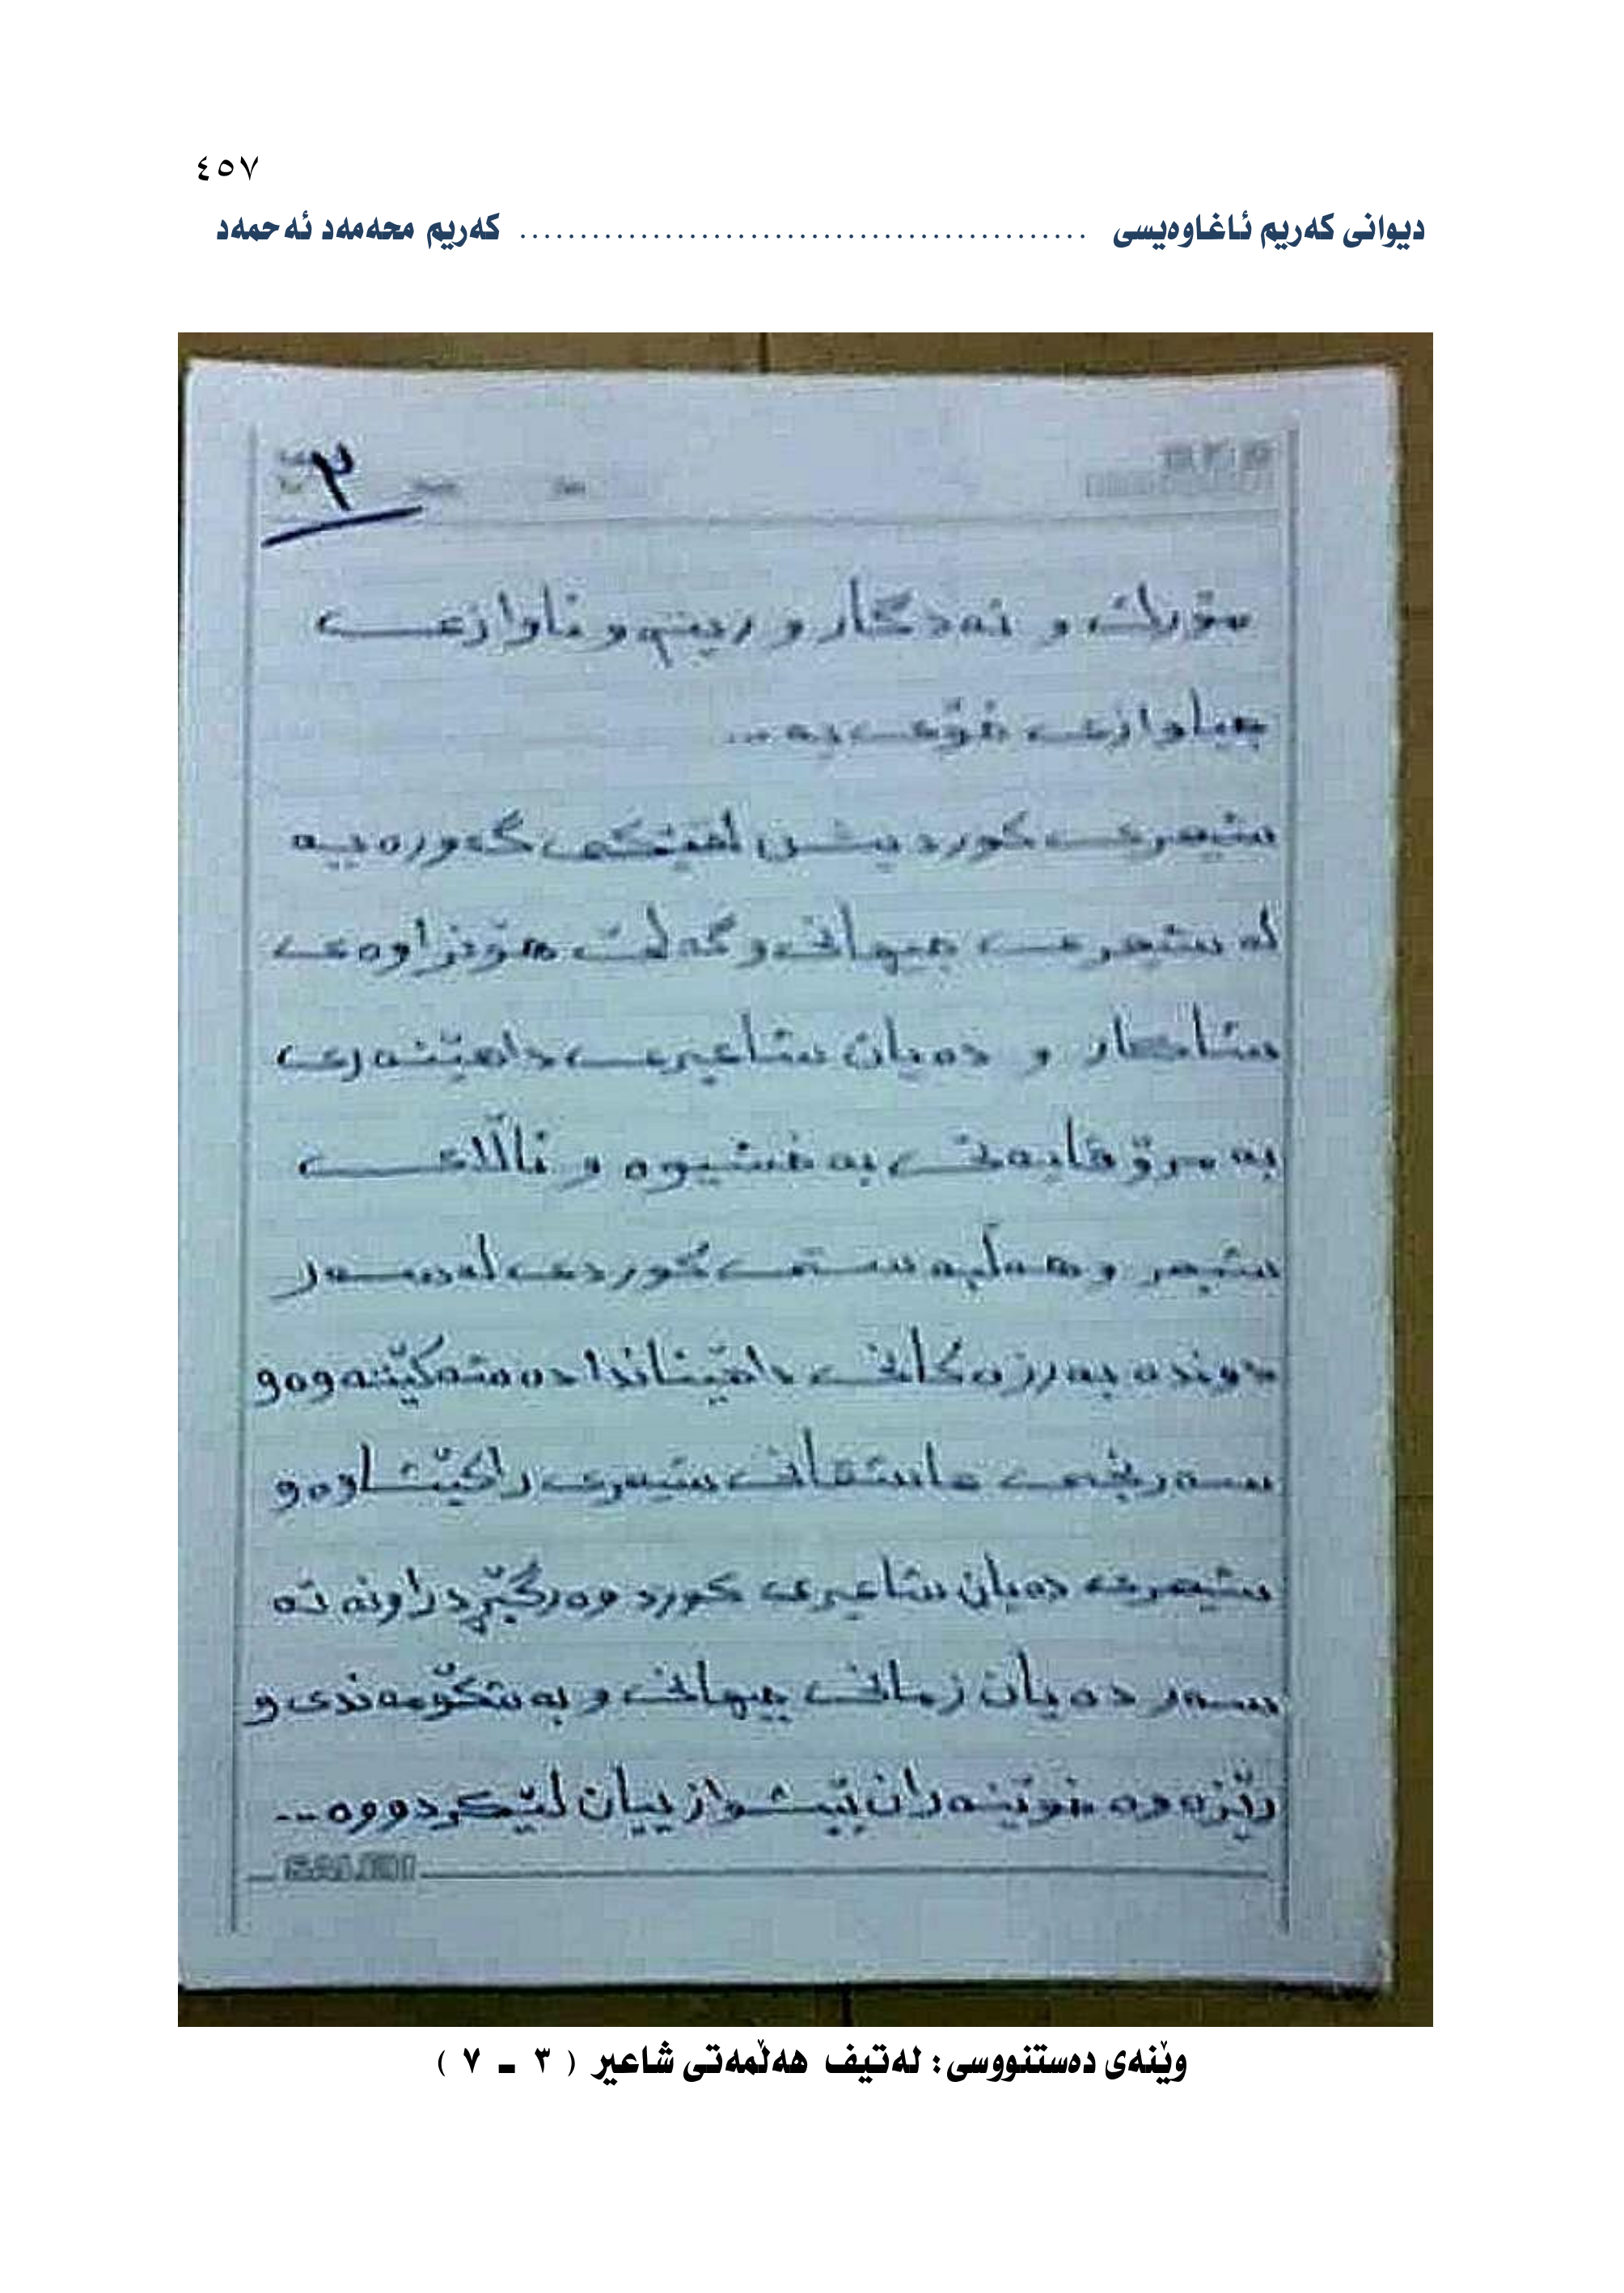 ٤٥٧
دیوانی کەریم ئاغاوەیسی ............................................... کەریم محەمەد ئەحمەد
٣
مۆرك و ئەدگار و ریتم و ئاوازی
جیاوازی خۆی یە...
شیعری کورد بەشێکی گەورەیە
لە شیعری جیهانی و گەلێ هۆنراوەی
شاکار و دەیان شاعیری داهێنەری
بە مرۆڤایەتی بەخشیوە و ئاڵای
شیعر و هەڵبەستی کوردی لەسەر
لوتکە بەرزەکانی داهێناندا دەشەکێتەوە و
سەرنجی عاشقانی شیعری راکێشاوە و
شیعری دەیان شاعیری کورد وەرگێڕدراونەتە
سەر دەیان زمانی جیهانی و بە شکۆمەندی و
رێزەوە خوێنەران پێشوازییان لێکردووە...
وێنەی دەستنووسی: لەتیف هەڵمەتی شاعیر ( ٣ - ٧ )